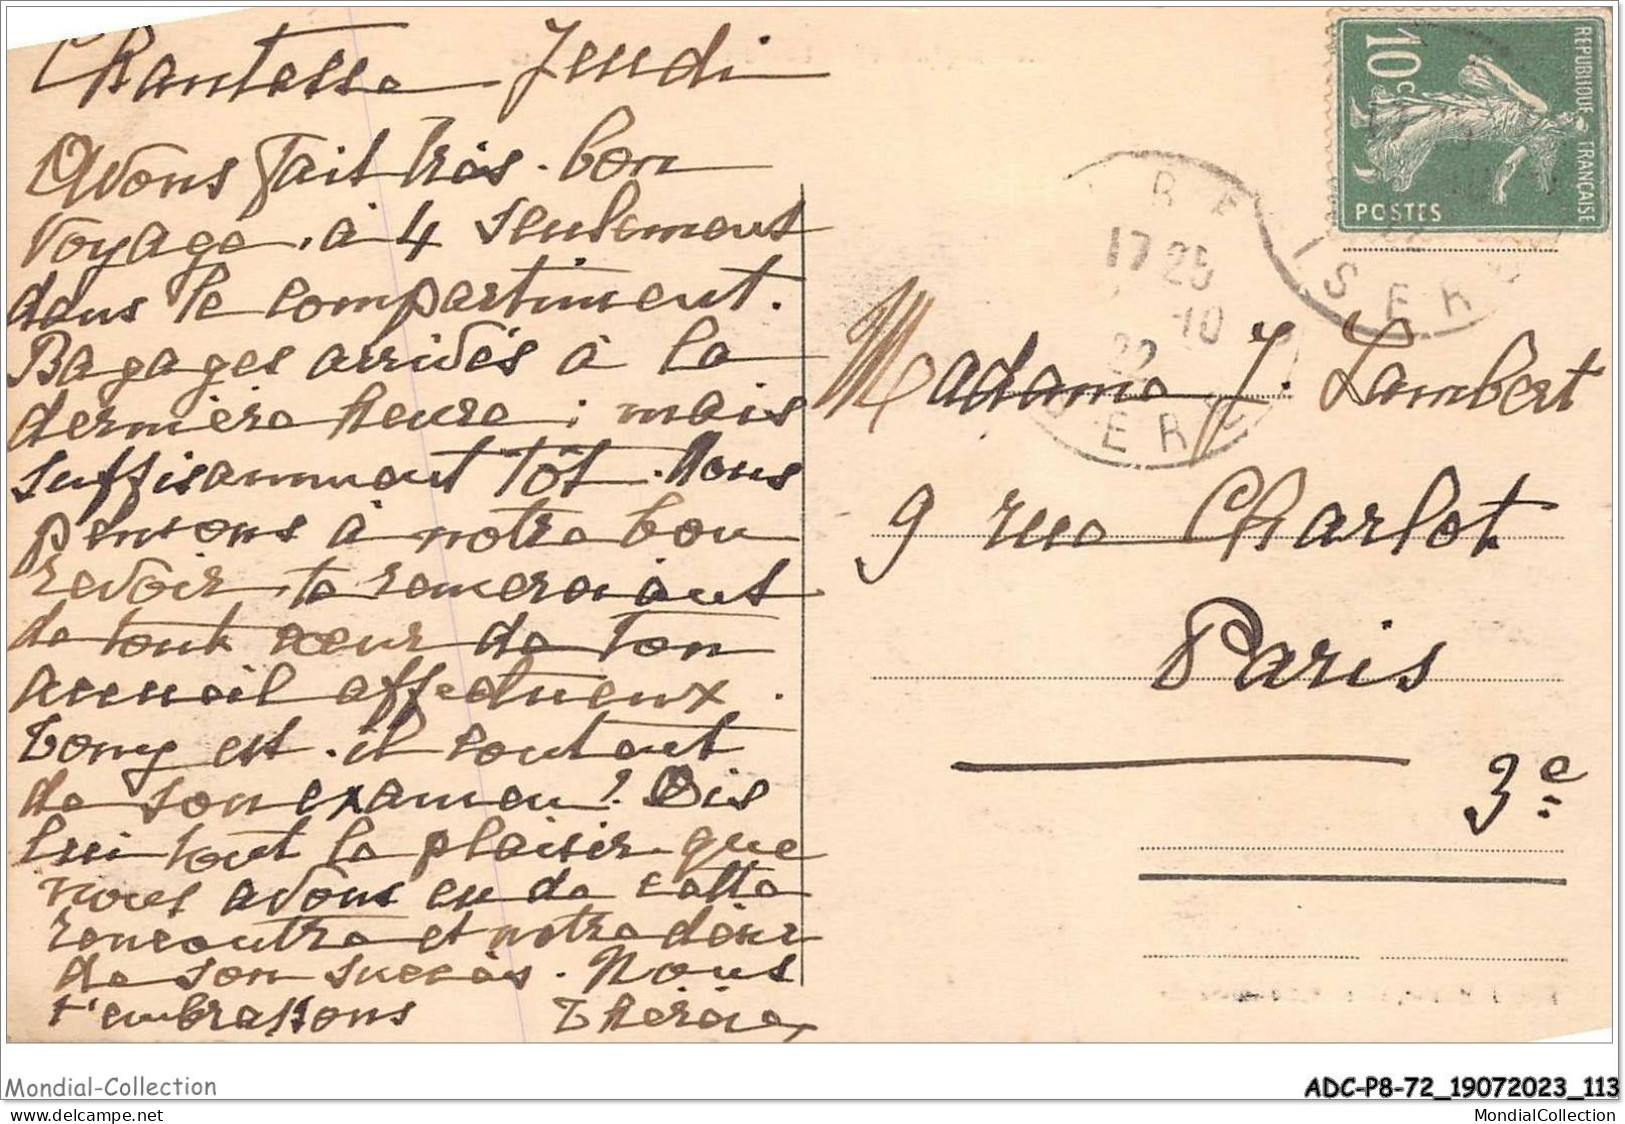 Chantesse Jeudi
Avons fait très bon
voyage, à 4 seulement
dans le compartiment.
Bagages arrivés à la
dernière heure ; mais
suffisamment tôt. Nous
pensons à notre bon
revoir, te remerciant
de tout cœur de ton
accueil affectueux.
Tomy est-il content
de son examen ? Dis
lui tout le plaisir que
nous avons eu de cette
rencontre et notre désir
de son succès. Nous
t'embrassons Thérèse
REPUBLIQUE FRANÇAISE
10 c
POSTES
RE
ISERE
17 25
10
22
ISERE
Madame J. Lambert
9 rue Charlot
Paris
3e
Mondial-Collection
ADC-P8-72_19072023_113
www.delcampe.net
MondialCollection